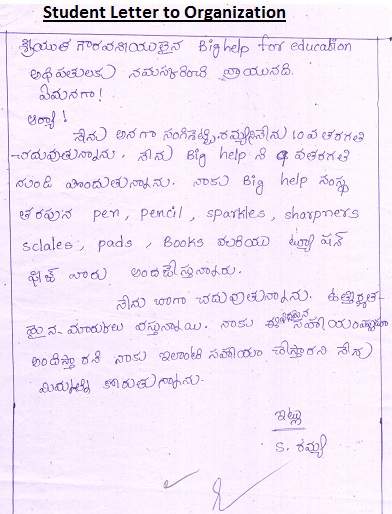 Student Letter to Organization
శ్రీయుత గౌరవనీయులైన Big help for education
అధిపతులకు నమస్కరించి వ్రాయునది.
ఏమనగా!
ఆర్యా!
నేను అనగా సంగిశెట్టి.రమ్య.నేను 10వ తరగతి
చదువుతున్నాను. నేను Big help ని 9 వతరగతి
నుండి పొందుతున్నాను. నాకు Big help సంస్థ
తరపున pen, pencil, sparkles, sharpners
sclales, pads, Books మరియు ట్యూషన్
ఫీజ్ వారు అందజేస్తున్నారు.
నేను బాగా చదువుతున్నాను. ఉత్తీర్ణత-
మైన మార్కులు వస్తున్నాయి. నాకు సహాయం
అందిస్తారని నాకు ఇలాంటి సహాయం చేస్తారని నేను
మిమ్మల్ని కోరుతున్నాను.
ఇట్లు
S. రమ్య